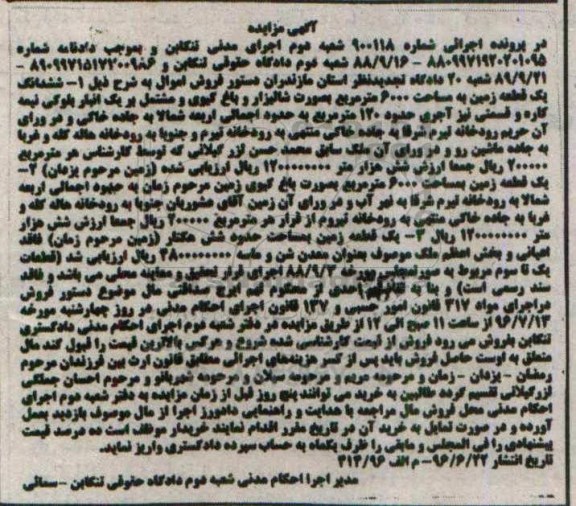 آگهی مزایده
در پرونده اجرائی شماره ۹۰۰۱۱۸ شعبه دوم اجرای مدنی تنکابن و بموجب دادنامه شماره
۸۸۰۹۹۷۱۹۲۰۲۰۱۰۹۵ - ۸۸/۹/۱۶ شعبه دوم دادگاه حقوقی تنکابن و ۸۹۰۹۹۷۱۵۱۷۲۰۰۹۸۶ -
۸۹/۹/۲۱ شعبه ۲۰ دادگاه تجدیدنظر استان مازندران دستور فروش اموال به شرح ذیل ۱- ششدانگ
یک قطعه زمین به مساحت ۶۰۰۰ مترمربع بصورت شالیزار و باغ کیوی و مشتمل بر یک انبار بلوکی نیمه
کاره و قسمتی نیز آجری حدود ۱۲۰ مترمربع به حدود اجمالی اربعه شمالا به جاده خاکی و در ورای
آن حریم رودخانه تیرم شرقا به جاده خاکی منتهی به رودخانه تیرم و جنوبا به رودخانه هاله کله و غربا
به جاده ماشین رو و در ورای آن ملک سابق محمد حسن لزر گیلانی که توسط کارشناس هر مترمربع
۲۰۰۰۰۰ ریال جمعا ارزش شش هزار متر ۱۲۰۰۰۰۰۰۰۰ ریال ارزیابی شده (زمین مرحوم یزدان) ۲-
یک قطعه زمین بمساحت ۶۰۰۰ مترمربع بصورت باغ کیوی زمین مرحوم زمان به حدود اجمالی اربعه
شمالا به رودخانه تیرم شرقا به نهر آب و در ورای آن زمین آقای عشوریان جنوبا به رودخانه هاله کله و
غربا به جاده خاکی منتهی به رودخانه تیروم از قرار هر مترمربع ۲۰۰۰۰۰ ریال جمعا ارزش شش هزار
متر ۱۲۰۰۰۰۰۰۰۰ ریال ۳- یک قطعه زمین بمساحت حدود شش هکتار (زمین مرحوم زمان) فاقد
اعیانی و بخش اعظم ملک موصوف بعنوان معدن شن و ماسه ۴۸۰۰۰۰۰۰۰۰ ریال ارزیابی شد (قطعات
یک تا سوم مربوط به صورتمجلس مورخه ۸۸/۹/۳ اجرای قرار تحقیق و معاینه محلی می باشد و فاقد
سند رسمی است) و بنا به تقاضای احدی از محکوم لهم ابراج صداقتی مال موضوع دستور فروش
دراجرای مواد ۳۱۷ قانون امور حسبی و ۱۳۷ قانون اجرای احکام مدنی در روز چهارشنبه مورخه
۹۶/۷/۱۳ از ساعت ۱۱ صبح الی ۱۲ از طریق مزایده در دفتر شعبه دوم اجرای احکام مدنی دادگستری
تنکابن بفروش می رود فروش از قیمت کارشناسی شده شروع و هرکس بالاترین قیمت را قبول کند مال
متعلق به اوست حاصل فروش باید پس از کسر هزینه‌های اجرائی مطابق قانون ارث بین فرزندان مرحوم
رمضان - یزدان - زمان و مرحومه مریم و مرحومه سیلان و مرحومه شهربانو و مرحوم احسان جملگی
لزرگیلانی تقسیم گردد طالبین به خرید می توانند پنج روز قبل از زمان مزایده به دفتر شعبه دوم اجرای
احکام مدنی محل فروش مال مراجعه با هدایت و راهنمایی دادورز اجرا از مال موصوف بازدید بعمل
آورده و در صورت تمایل به خرید آن در تاریخ مقرر اقدام نمایند خریدار موظف است ده درصد قیمت
پیشنهادی را فی المجلس و مابقی را ظرف یکماه به حساب سپرده دادگستری واریز نماید.
تاریخ انتشار ۹۶/۶/۲۲- م الف ۳۱۳/۹۶
مدیر اجرا احکام مدنی شعبه دوم دادگاه حقوقی تنکابن -سمائی